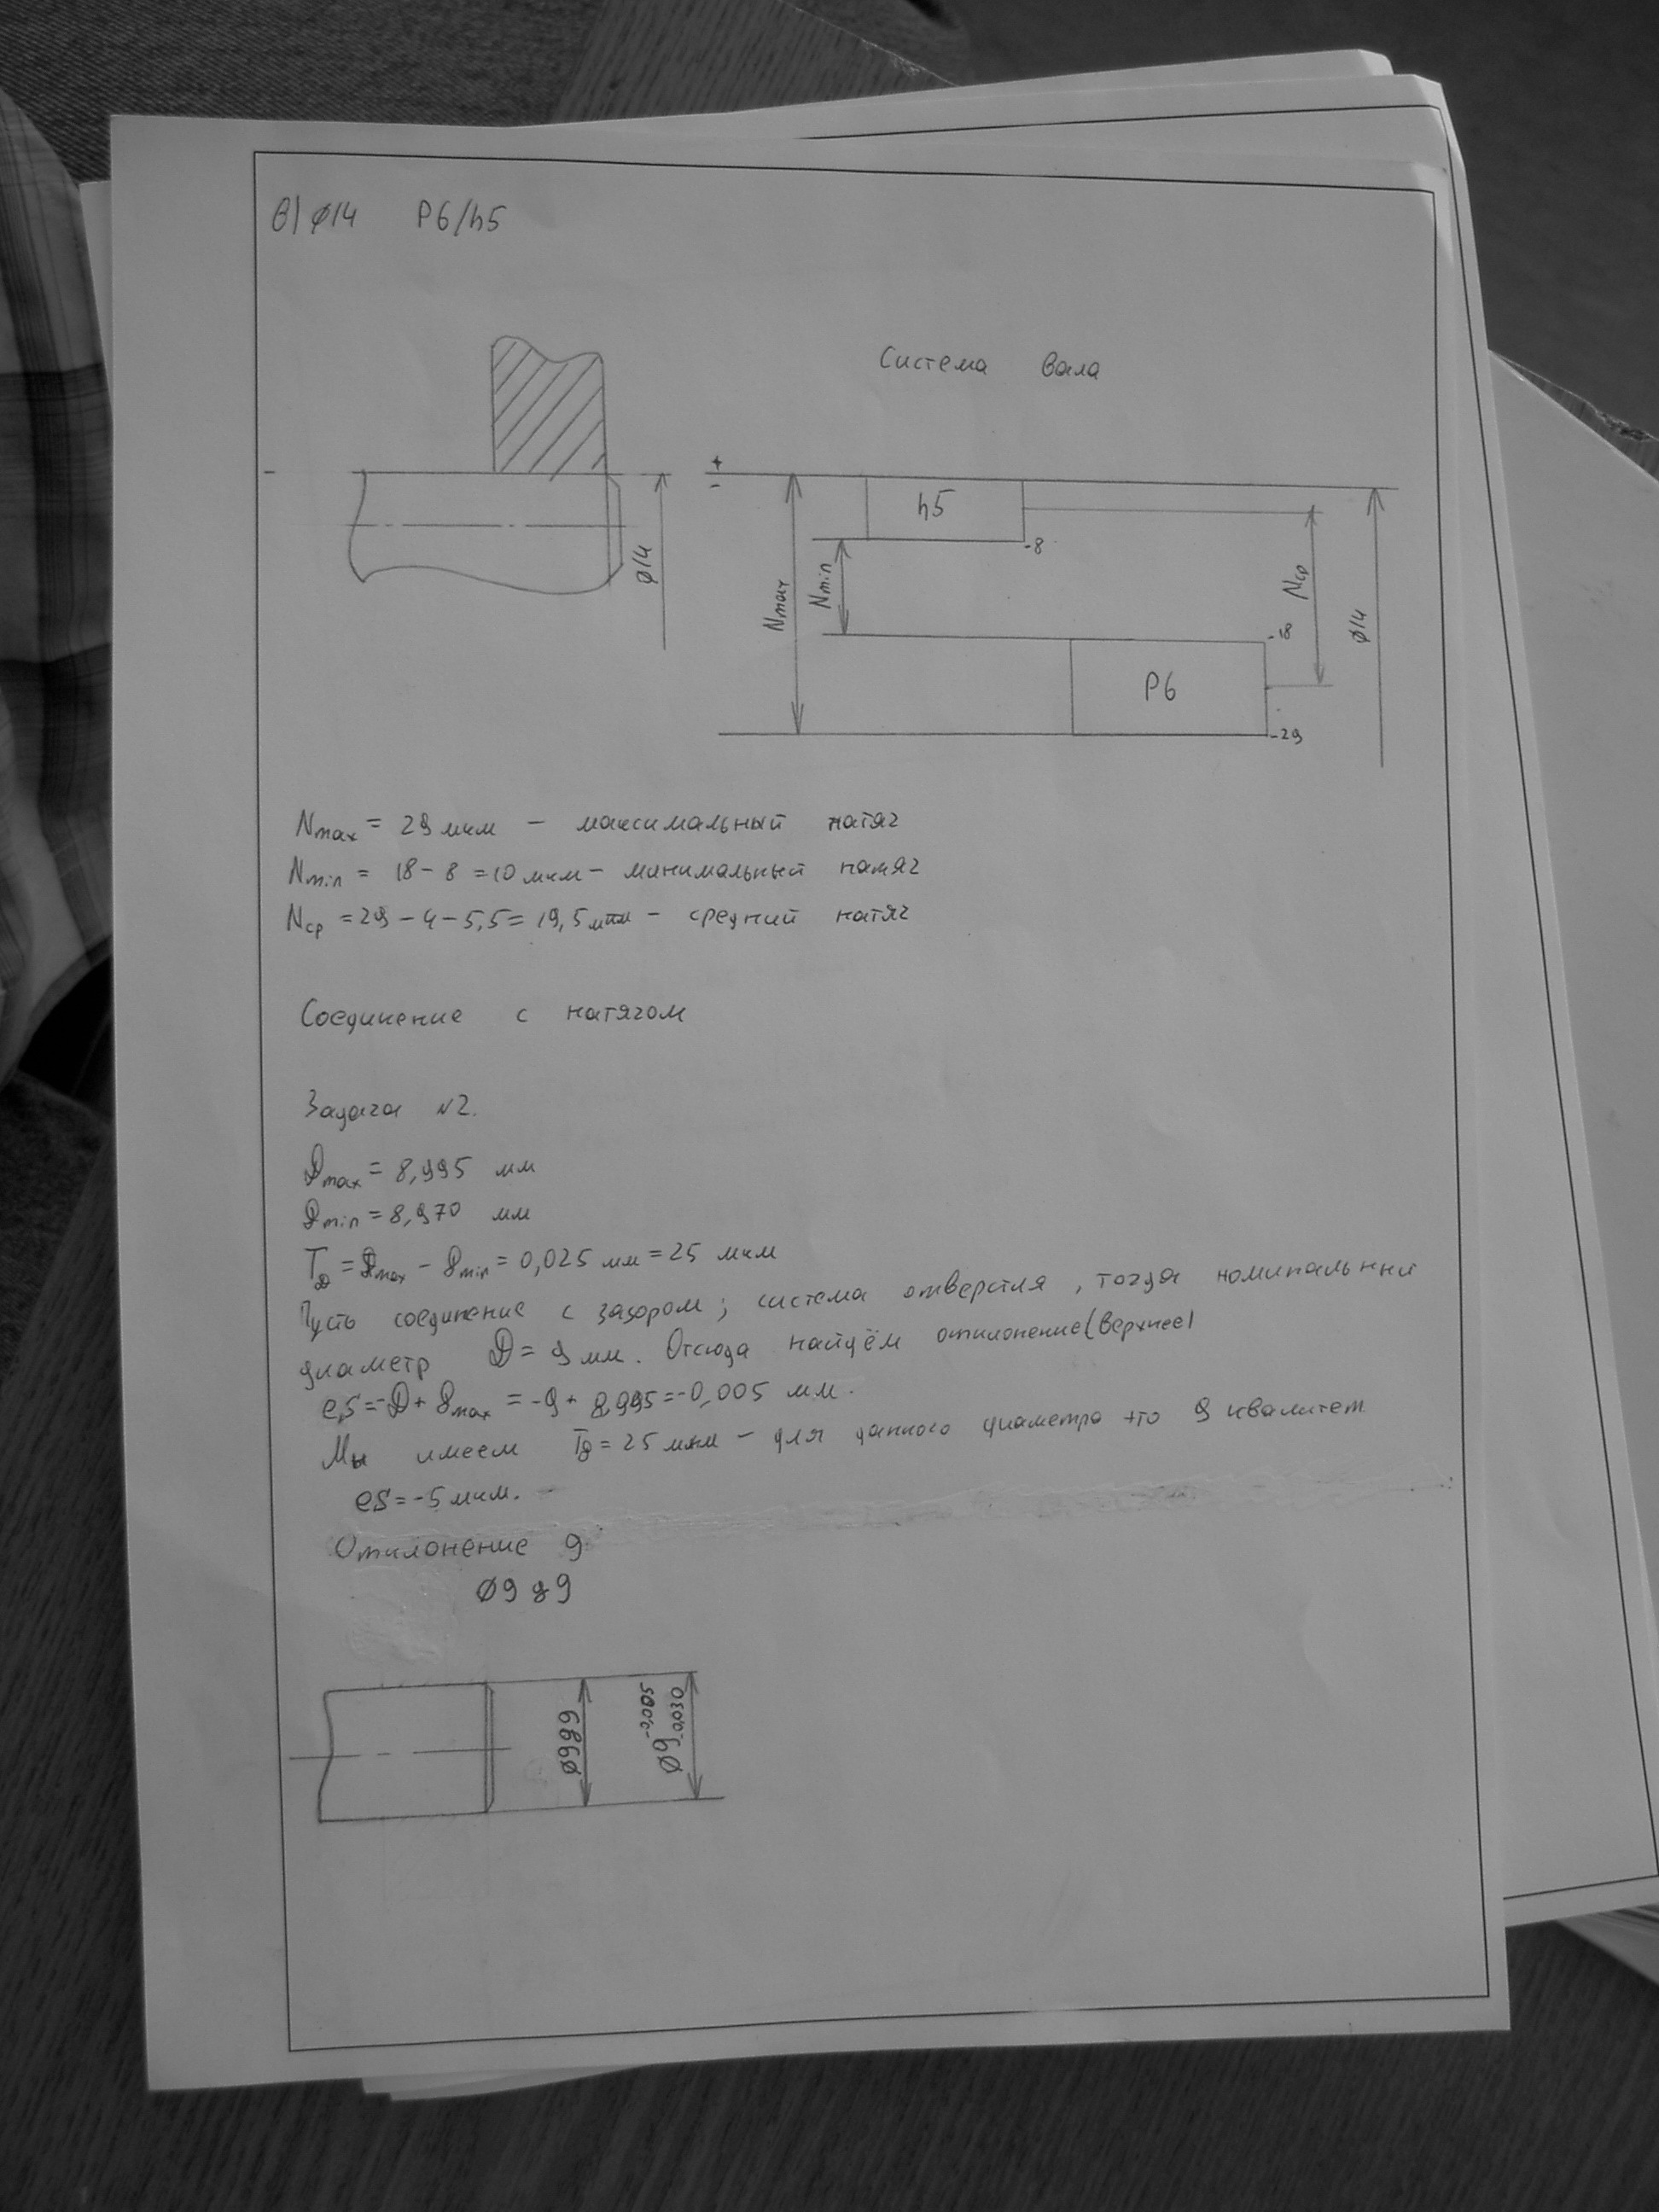 в) ⌀14 P6/h5
Система вала
+
-
h5
-8
Nmax
Nmin
Nср
⌀14
⌀14
-18
P6
-29
Nmax = 29 мкм – максимальный натяг
Nmin = 18 - 8 = 10 мкм – минимальный натяг
Nср = 29 - 4 - 5,5 = 19,5 мкм – средний натяг
Соединение с натягом
Задача №2.
Dmax = 8,995 мм
dmin = 8,970 мм
Td = dmax - dmin = 0,025 мм = 25 мкм
Пусть соединение с зазором; система отверстия, тогда номинальный
диаметр D = 9 мм. Отсюда найдём отклонение (верхнее)
es = -D + dmax = -9 + 8,995 = -0,005 мм.
Мы имеем Td = 25 мкм – для данного диаметра это 9 квалитет
es = -5 мкм.
Отклонение g
⌀9 g9
⌀9g9
⌀9 -0,005 -0,030